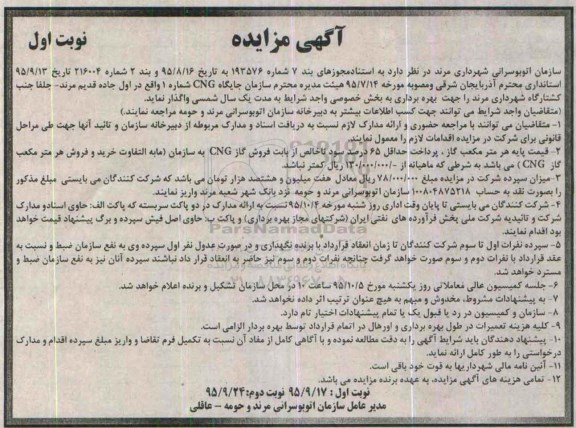 آگهی مزایده
نوبت اول
سازمان اتوبوسرانی شهرداری مرند در نظر دارد به استنادمجوزهای بند ۷ شماره ۱۹۳۵۷۶ به تاریخ ۹۵/۸/۱۶ و بند ۲ شماره ۲۱۶۰۰۴ تاریخ ۹۵/۹/۱۳
استانداری محترم آذربایجان شرقی ومصوبه مورخه ۹۵/۷/۱۴ هیئت مدیره محترم سازمان جایگاه CNG شماره ۱ واقع در اول جاده قدیم مرند- جلفا جنب
کشتارگاه شهرداری مرند را جهت بهره برداری به بخش خصوصی واجد شرایط به مدت یک سال شمسی واگذار نماید.
(متقاضیان واجد شرایط می توانند جهت کسب اطلاعات بیشتر به دبیرخانه سازمان اتوبوسرانی مرند و حومه مراجعه نمایند.)
۱- متقاضیان می توانند با مراجعه حضوری و ارائه مدارک لازم نسبت به دریافت اسناد و مدارک مربوطه از دبیرخانه سازمان و تائید آنها جهت طی مراحل
قانونی برای شرکت در مزایده اقدامات لازم را معمول نمایند.
۲- قیمت پایه هر متر مکعب گاز ، پرداخت حداقل ۶۵ درصد سود ناخالص از بابت فروش گاز CNG به سازمان (مابه التفاوت خرید و فروش هر متر مکعب
گاز CNG ) می باشد به شرطی که ماهیانه از -/۱۳۰/۰۰۰/۰۰۰ ریال کمتر نباشد.
۳- میزان سپرده شرکت در مزایده مبلغ ۷۸/۰۰۰/۰۰۰ ریال معادل هفت میلیون و هشتصد هزار تومان می باشد که شرکت کنندگان می بایستی مبلغ مذکور
را بصورت نقد به حساب ۱۰۰۸۰۴۸۷۵۲۱۸ سازمان اتوبوسرانی مرند و حومه نزد بانک شهر شعبه مرند واریز نمایند.
۴- شرکت کنندگان می بایستی تا پایان وقت اداری روز شنبه مورخه ۹۵/۱۰/۴ نسبت به ارائه مدارک در دو پاکت سربسته که پاکت الف: حاوی اسنادو مدارک
شرکت و تائیدیه شرکت ملی پخش فرآورده های نفتی ایران (شرکتهای مجاز بهره برداری) و پاکت ب: حاوی اصل فیش سپرده و برگ پیشنهاد قیمت خواهد
بود اقدام نمایند.
۵- سپرده نفرات اول تا سوم شرکت کنندگان تا زمان انعقاد قرارداد با برنده نگهداری و در صورت عدول نفر اول سپرده وی به نفع سازمان ضبط و نسبت به
عقد قرارداد با نفرات دوم و سوم صورت خواهد گرفت چنانچه نفرات دوم و سوم نیز حاضر به انعقاد قرار داد نباشند سپرده آنان نیز به نفع سازمان ضبط و
مسترد خواهد شد.
۶- جلسه کمیسیون عالی معاملاتی روز یکشنبه مورخ ۹۵/۱۰/۵ ساعت ۱۰ در محل سازمان تشکیل و برنده اعلام خواهد شد.
۷- به پیشنهادات مشروط، مخدوش و مبهم به هیچ عنوان ترتیب اثر داده نخواهد شد.
۸- سازمان و کمیسیون در رد یا قبول یک یا تمام پیشنهادات اختیار تام دارد.
۹- کلیه هزینه تعمیرات در طول بهره برداری و اورهال در اتمام قرارداد توسط بهره بردار الزامی است.
۱۰- پیشنهاد دهندگان باید شرایط آگهی را به دقت مطالعه نموده و با آگاهی کامل از مفاد آن نسبت به تکمیل فرم تقاضا و واریز مبلغ سپرده اقدام و مدارک
درخواستی را به طور کامل ارائه نماید.
۱۱- آئین نامه مالی شهرداریها به قوت خود باقی است.
۱۲- تمامی هزینه های آگهی مزایده، به عهده برنده مزایده می باشد.
نوبت اول : ۹۵/۹/۱۷ نوبت دوم: ۹۵/۹/۲۴
مدیر عامل سازمان اتوبوسرانی مرند و حومه - عاقلی
ParsNamadData